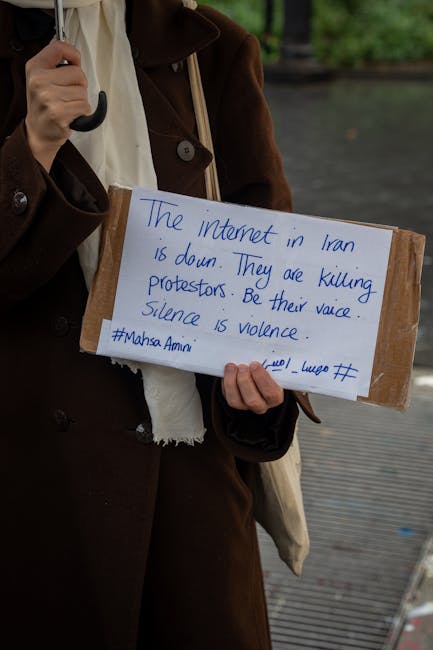 The internet in Iran
is down. They are killing
protestors. Be their voice.
Silence is violence.
#Mahsa Amini
#مهسا_امینی